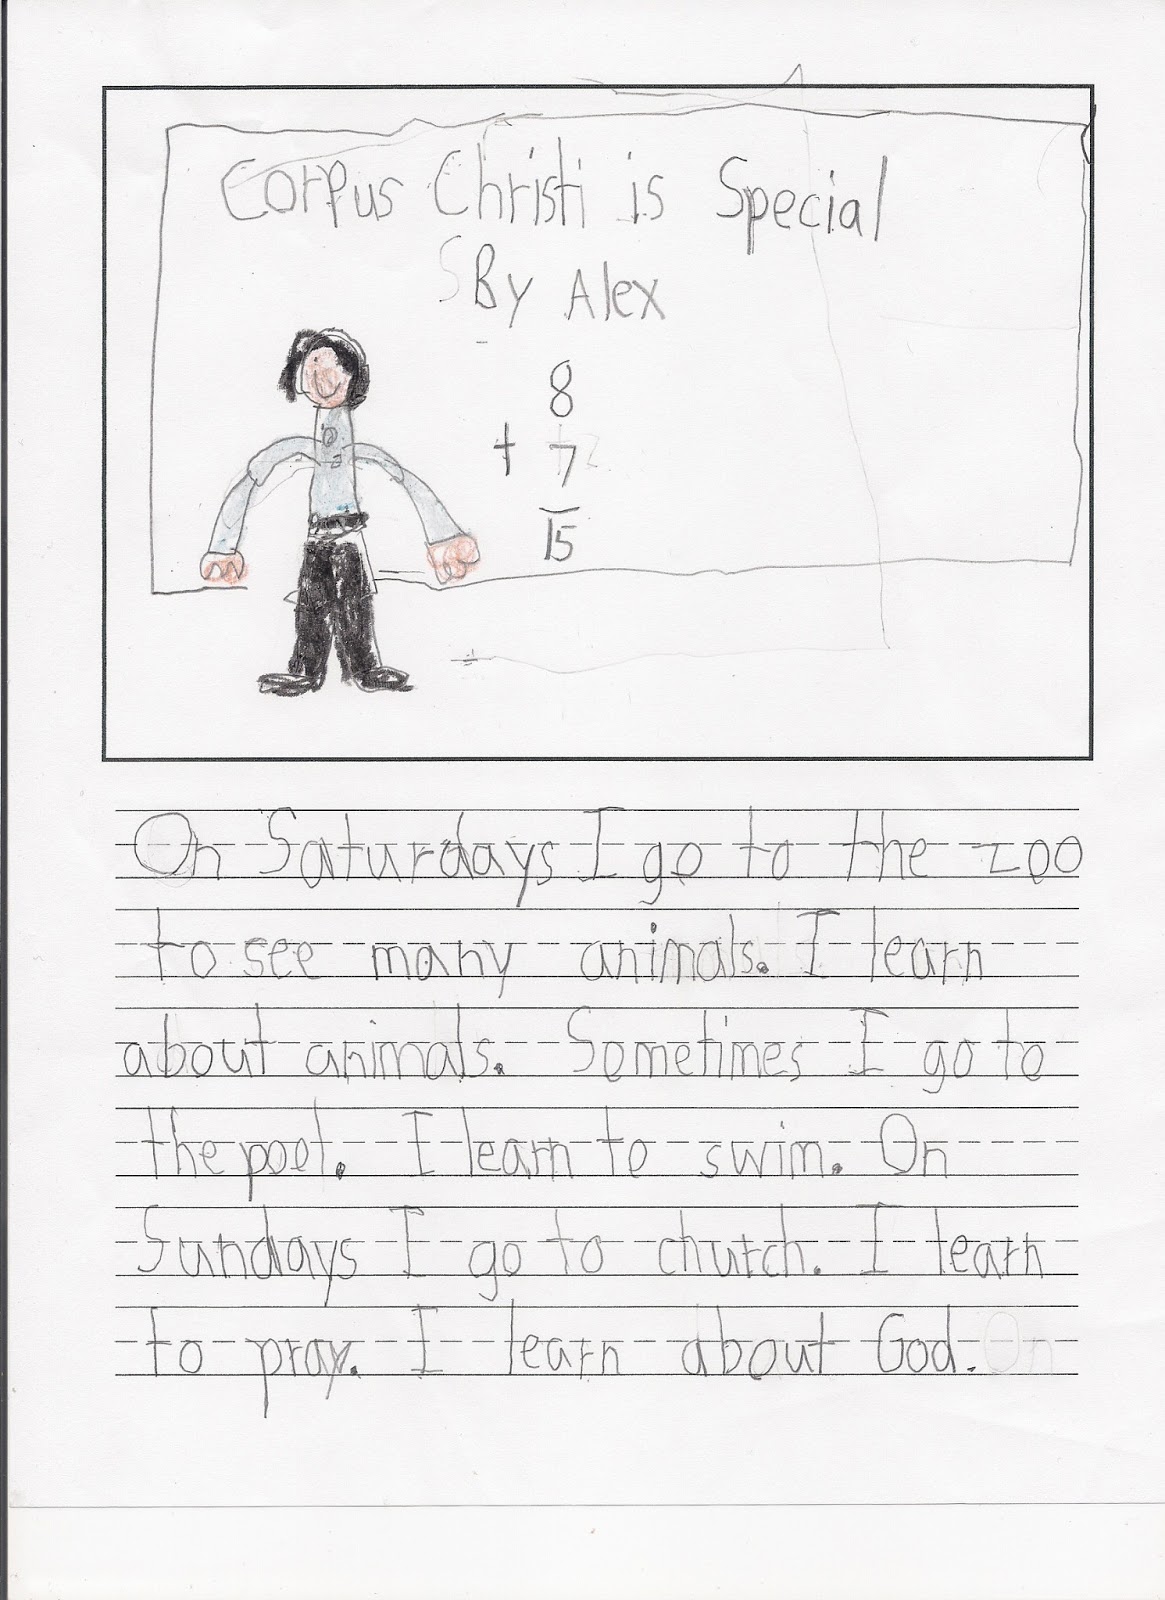 Corpus Christi is Special
By Alex
8
+ 7
15
On Saturdays I go to the zoo
to see many animals. I learn
about animals. Sometimes I go to
the pool. I learn to swim. On
Sundays I go to church. I learn
to pray. I learn about God. On